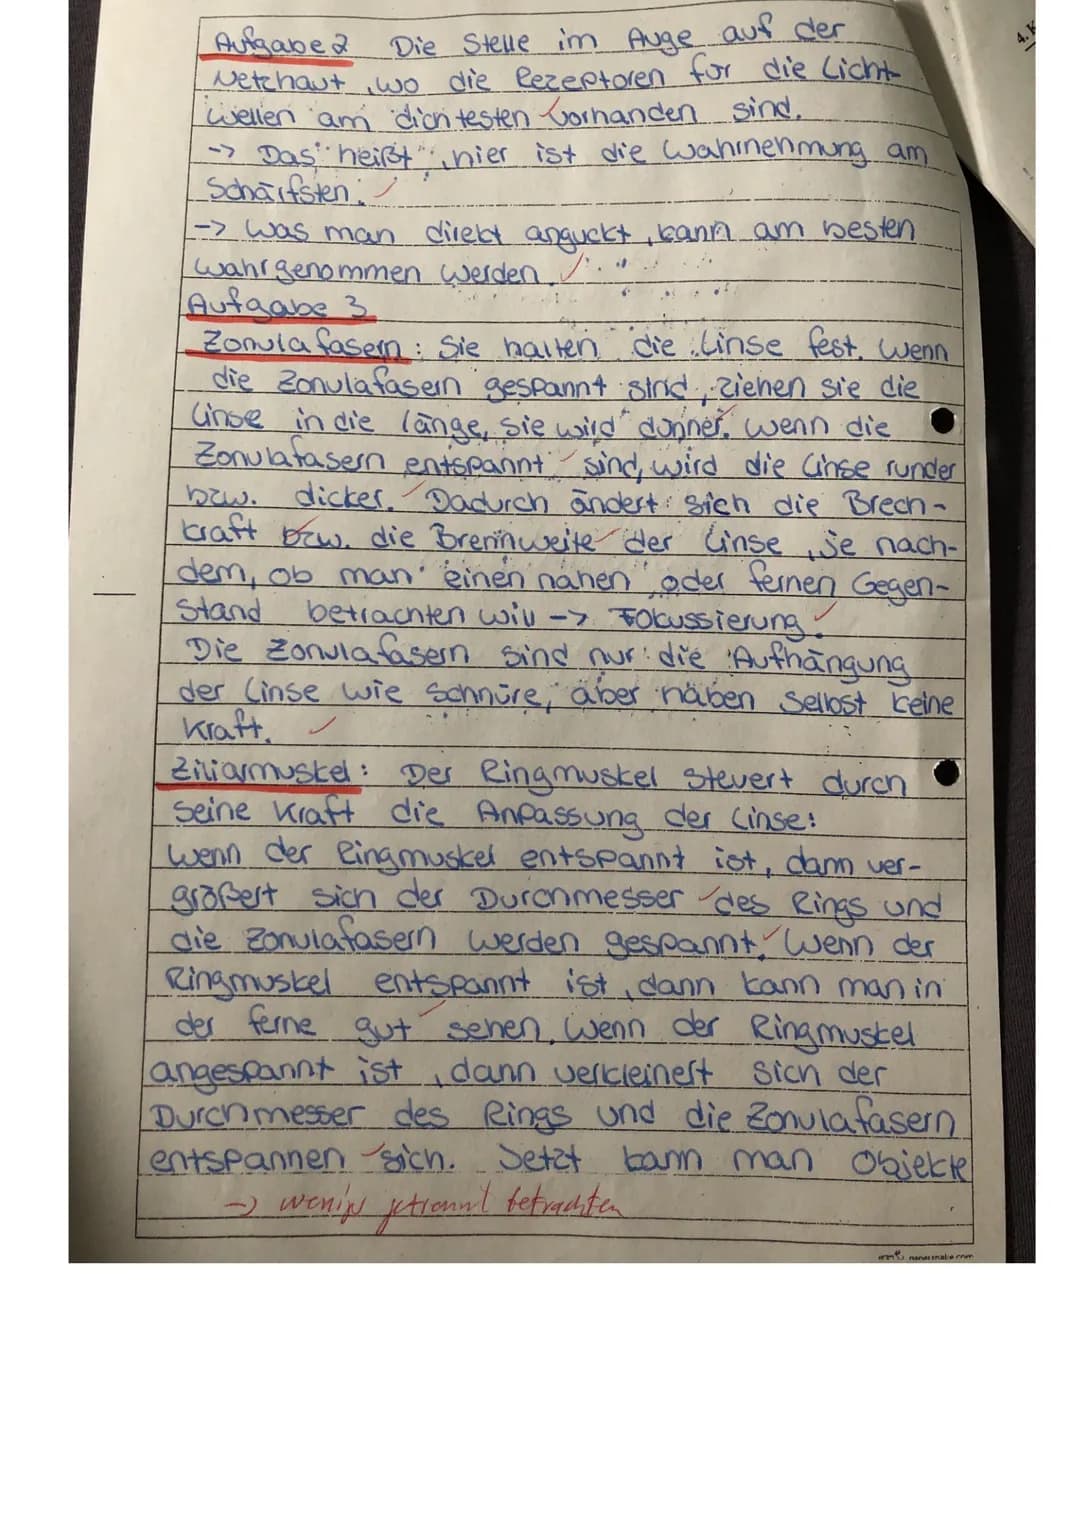 Aufgabe 2 Die Stelle im Auge auf der
Netzhaut, wo die Rezeptoren für die Licht-
wellen am dichtesten vorhanden sind.
-> Das heißt, hier ist die Wahrnehmung am
Schärfsten.
-> Was man direkt anguckt, kann am besten
wahrgenommen werden.
Aufgabe 3
Zonulafasern: Sie halten die Linse fest. Wenn
die Zonulafasern gespannt sind, ziehen sie die
Linse in die länge, sie wird dünner. Wenn die
Zonulafasern entspannt sind, wird die Linse runder
bzw. dicker. Dadurch ändert sich die Brech-
kraft bzw. die Brennweite der Linse, je nach-
dem, ob man einen nahen oder fernen Gegen-
stand betrachten will -> Fokussierung.
Die Zonulafasern sind nur die Aufhängung
der Linse wie Schnüre, aber haben selbst keine
Kraft.
Ziliarmuskel: Der Ringmuskel steuert durch
seine Kraft die Anpassung der Linse:
Wenn der Ringmuskel entspannt ist, dann ver-
größert sich der Durchmesser des Rings und
die Zonulafasern werden gespannt. Wenn der
Ringmuskel entspannt ist, dann kann man in
der ferne gut sehen. Wenn der Ringmuskel
angespannt ist, dann verkleinert sich der
Durchmesser des Rings und die Zonulafasern
entspannen sich. Jetzt kann man Objekte
-> betrachten
4. K